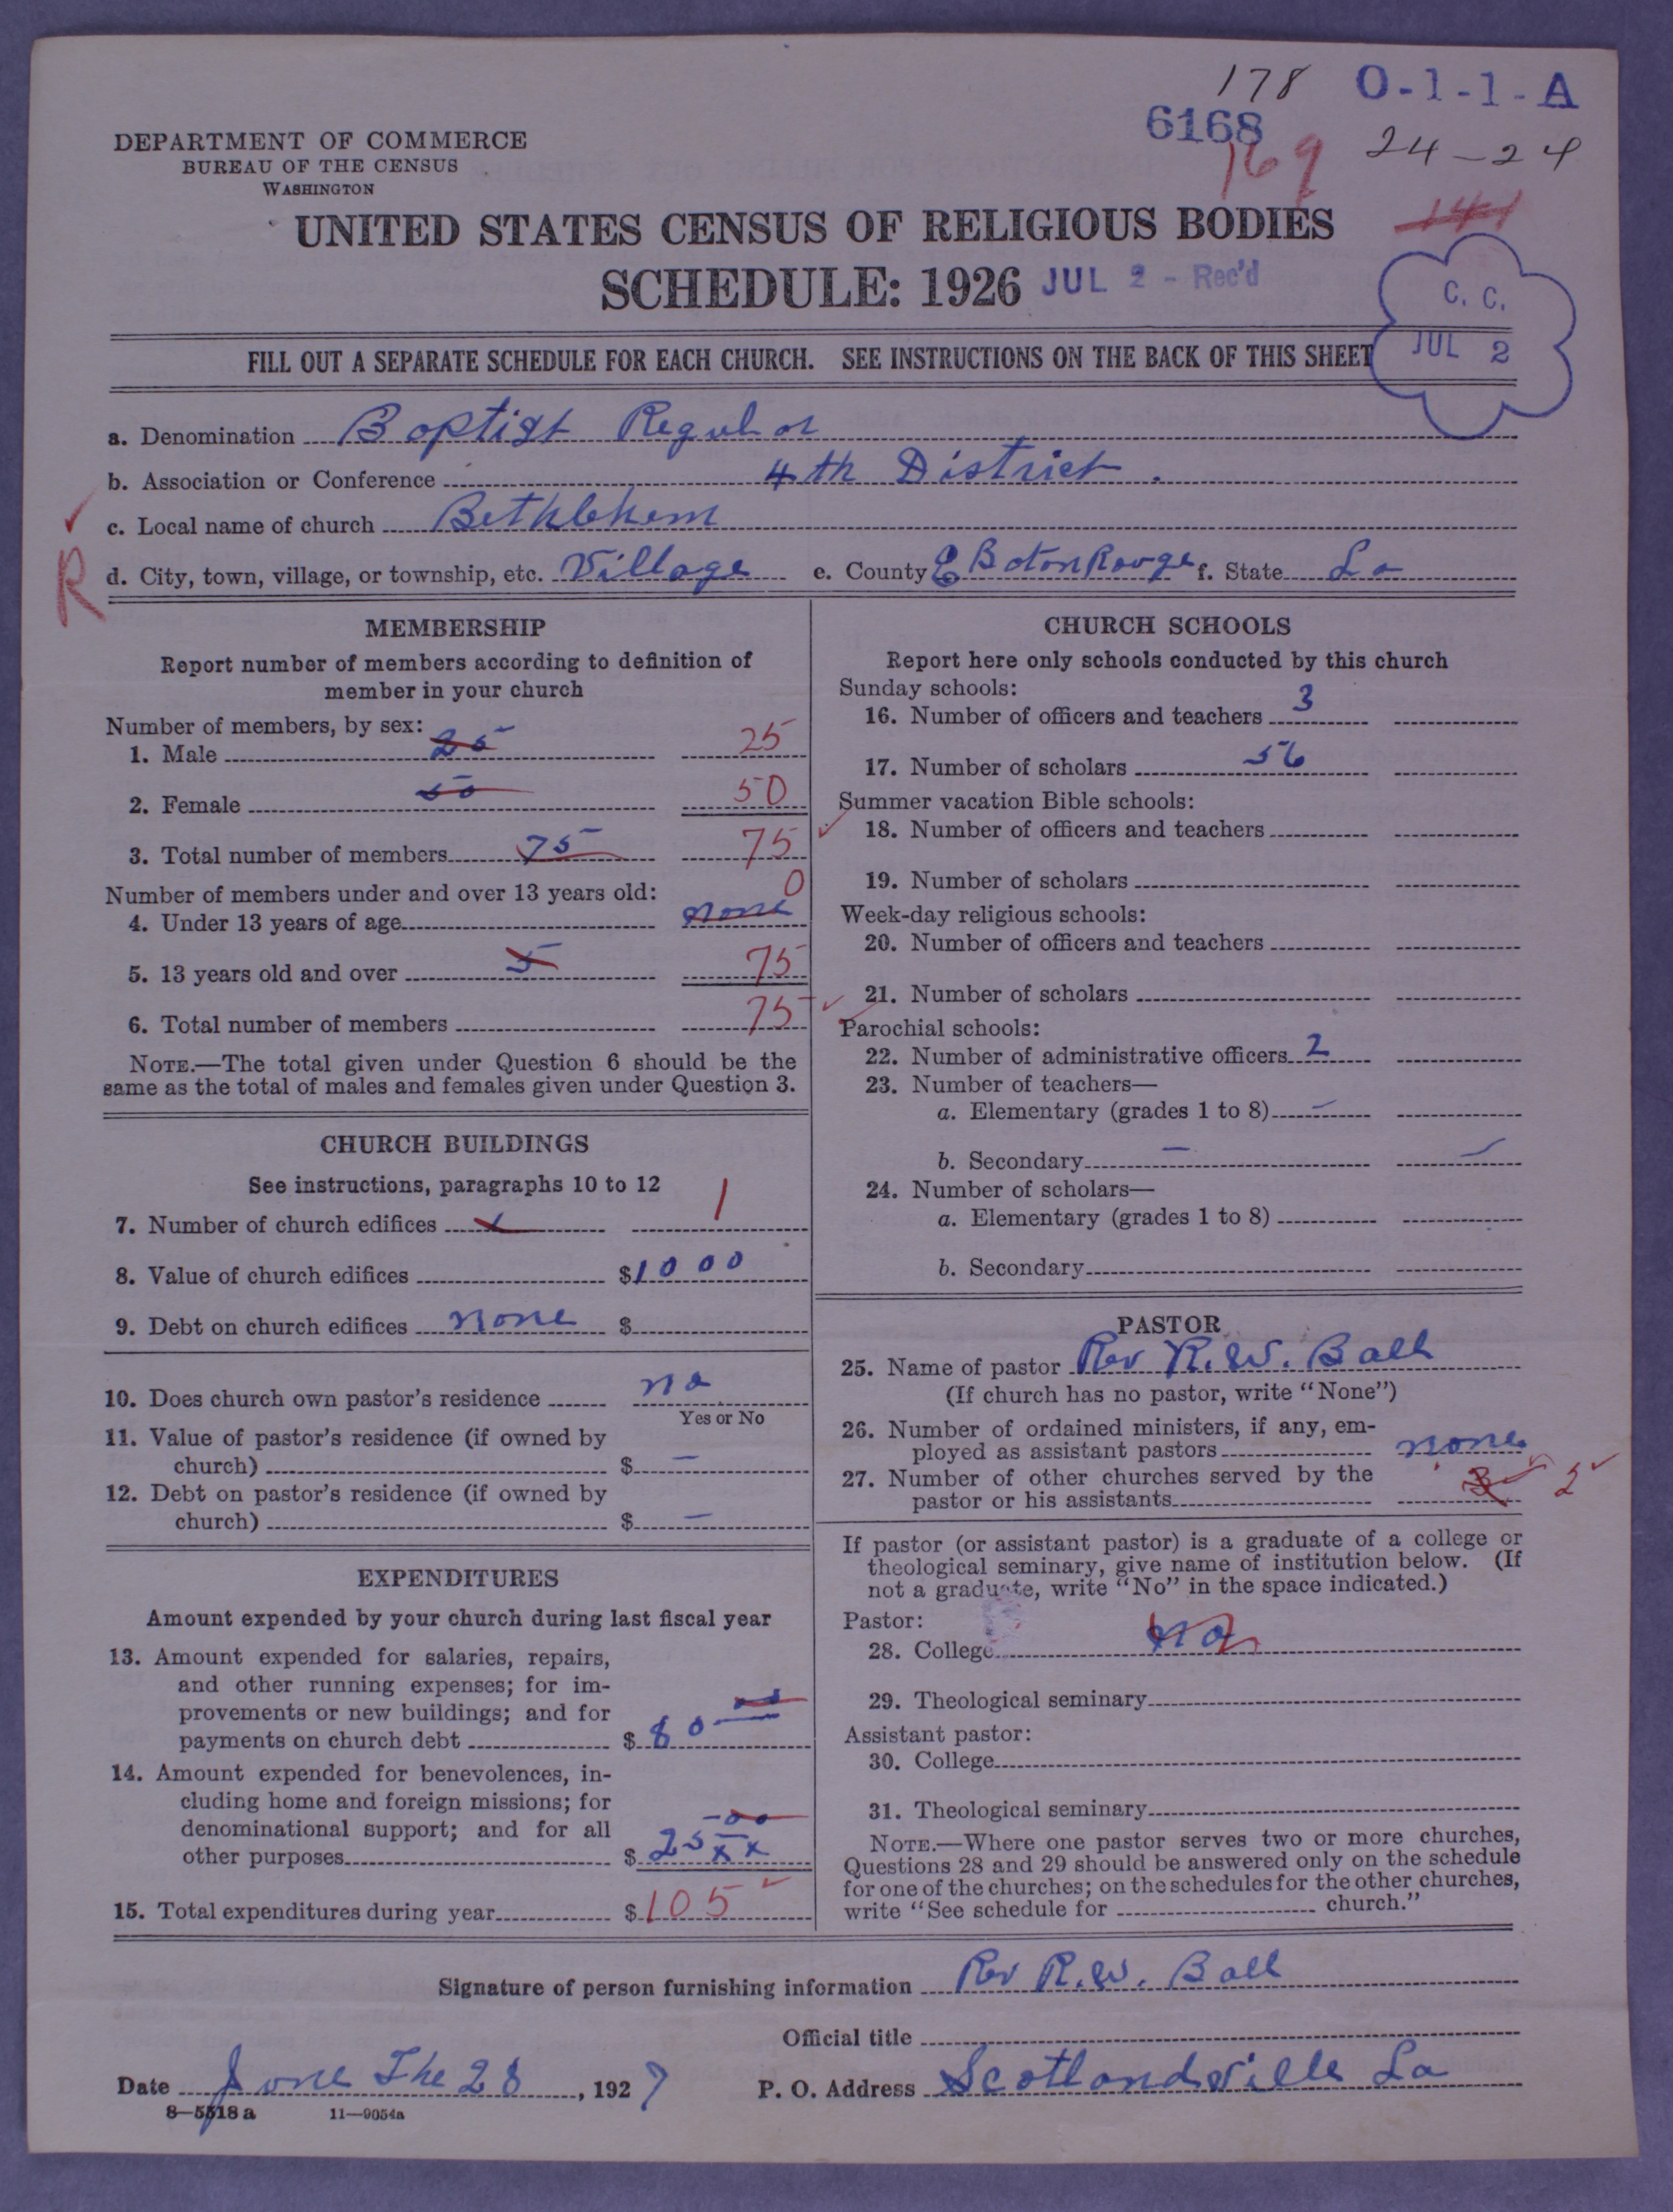 178 O-1-1-A
6168
169 24-24
141
DEPARTMENT OF COMMERCE
BUREAU OF THE CENSUS
WASHINGTON
UNITED STATES CENSUS OF RELIGIOUS BODIES
SCHEDULE: 1926 JUL 2 - Rec'd
C. C.
JUL 2
FILL OUT A SEPARATE SCHEDULE FOR EACH CHURCH. SEE INSTRUCTIONS ON THE BACK OF THIS SHEET
a. Denomination Baptist Regular
b. Association or Conference 4th District.
c. Local name of church Bethlehem
R d. City, town, village, or township, etc. Village e. County E Baton Rouge f. State La
MEMBERSHIP
Report number of members according to definition of
member in your church
Number of members, by sex:
1. Male 25 25
2. Female 50 50
3. Total number of members 75 75
Number of members under and over 13 years old: 0
4. Under 13 years of age none
5. 13 years old and over 5 75
6. Total number of members 75
NOTE.—The total given under Question 6 should be the
same as the total of males and females given under Question 3.
CHURCH BUILDINGS
See instructions, paragraphs 10 to 12
7. Number of church edifices 1 1
8. Value of church edifices $1000
9. Debt on church edifices none $
10. Does church own pastor's residence no
Yes or No
11. Value of pastor's residence (if owned by
church) $ —
12. Debt on pastor's residence (if owned by
church) $ —
EXPENDITURES
Amount expended by your church during last fiscal year
13. Amount expended for salaries, repairs,
and other running expenses; for im-
provements or new buildings; and for
payments on church debt $ 80
14. Amount expended for benevolences, in-
cluding home and foreign missions; for
denominational support; and for all
other purposes $ 25 00 xx
15. Total expenditures during year $105
CHURCH SCHOOLS
Report here only schools conducted by this church
Sunday schools:
16. Number of officers and teachers 3
17. Number of scholars 56
Summer vacation Bible schools:
18. Number of officers and teachers
19. Number of scholars
Week-day religious schools:
20. Number of officers and teachers
21. Number of scholars
Parochial schools:
22. Number of administrative officers 2
23. Number of teachers—
a. Elementary (grades 1 to 8) —
b. Secondary —
24. Number of scholars—
a. Elementary (grades 1 to 8)
b. Secondary
PASTOR
25. Name of pastor Rev R.W. Ball
(If church has no pastor, write "None")
26. Number of ordained ministers, if any, em-
ployed as assistant pastors none
27. Number of other churches served by the
pastor or his assistants 3 2
If pastor (or assistant pastor) is a graduate of a college or
theological seminary, give name of institution below. (If
not a graduate, write "No" in the space indicated.)
Pastor:
28. College no
29. Theological seminary
Assistant pastor:
30. College
31. Theological seminary
NOTE.—Where one pastor serves two or more churches,
Questions 28 and 29 should be answered only on the schedule
for one of the churches; on the schedules for the other churches,
write "See schedule for church."
Signature of person furnishing information Rev R.W. Ball
Official title
Date June The 28, 1927 P. O. Address Scotlandville La
8—5518 a 11—9054a